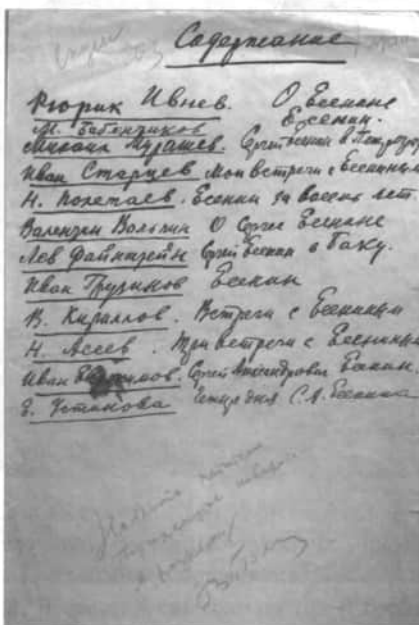 Содержание
Рюрик Ивнев. О Есенине
М. Бабенчиков Есенин.
Михаил Мурашев. Сергей Есенин в Петрограде
Иван Старцев Мои встречи с Есениным
Н. Полетаев. Есенин за восемь лет
Валентин Вольпин О Сергее Есенине
Лев Файнштейн Сергей Есенин в Баку.
Иван Грузинов Есенин
В. Кириллов. Встречи с Есениным
Н. Асеев. Три встречи с Есениным
Иван Евдокимов. Сергей Александрович Есенин.
Е. Устинова Четыре дня С. А. Есенина